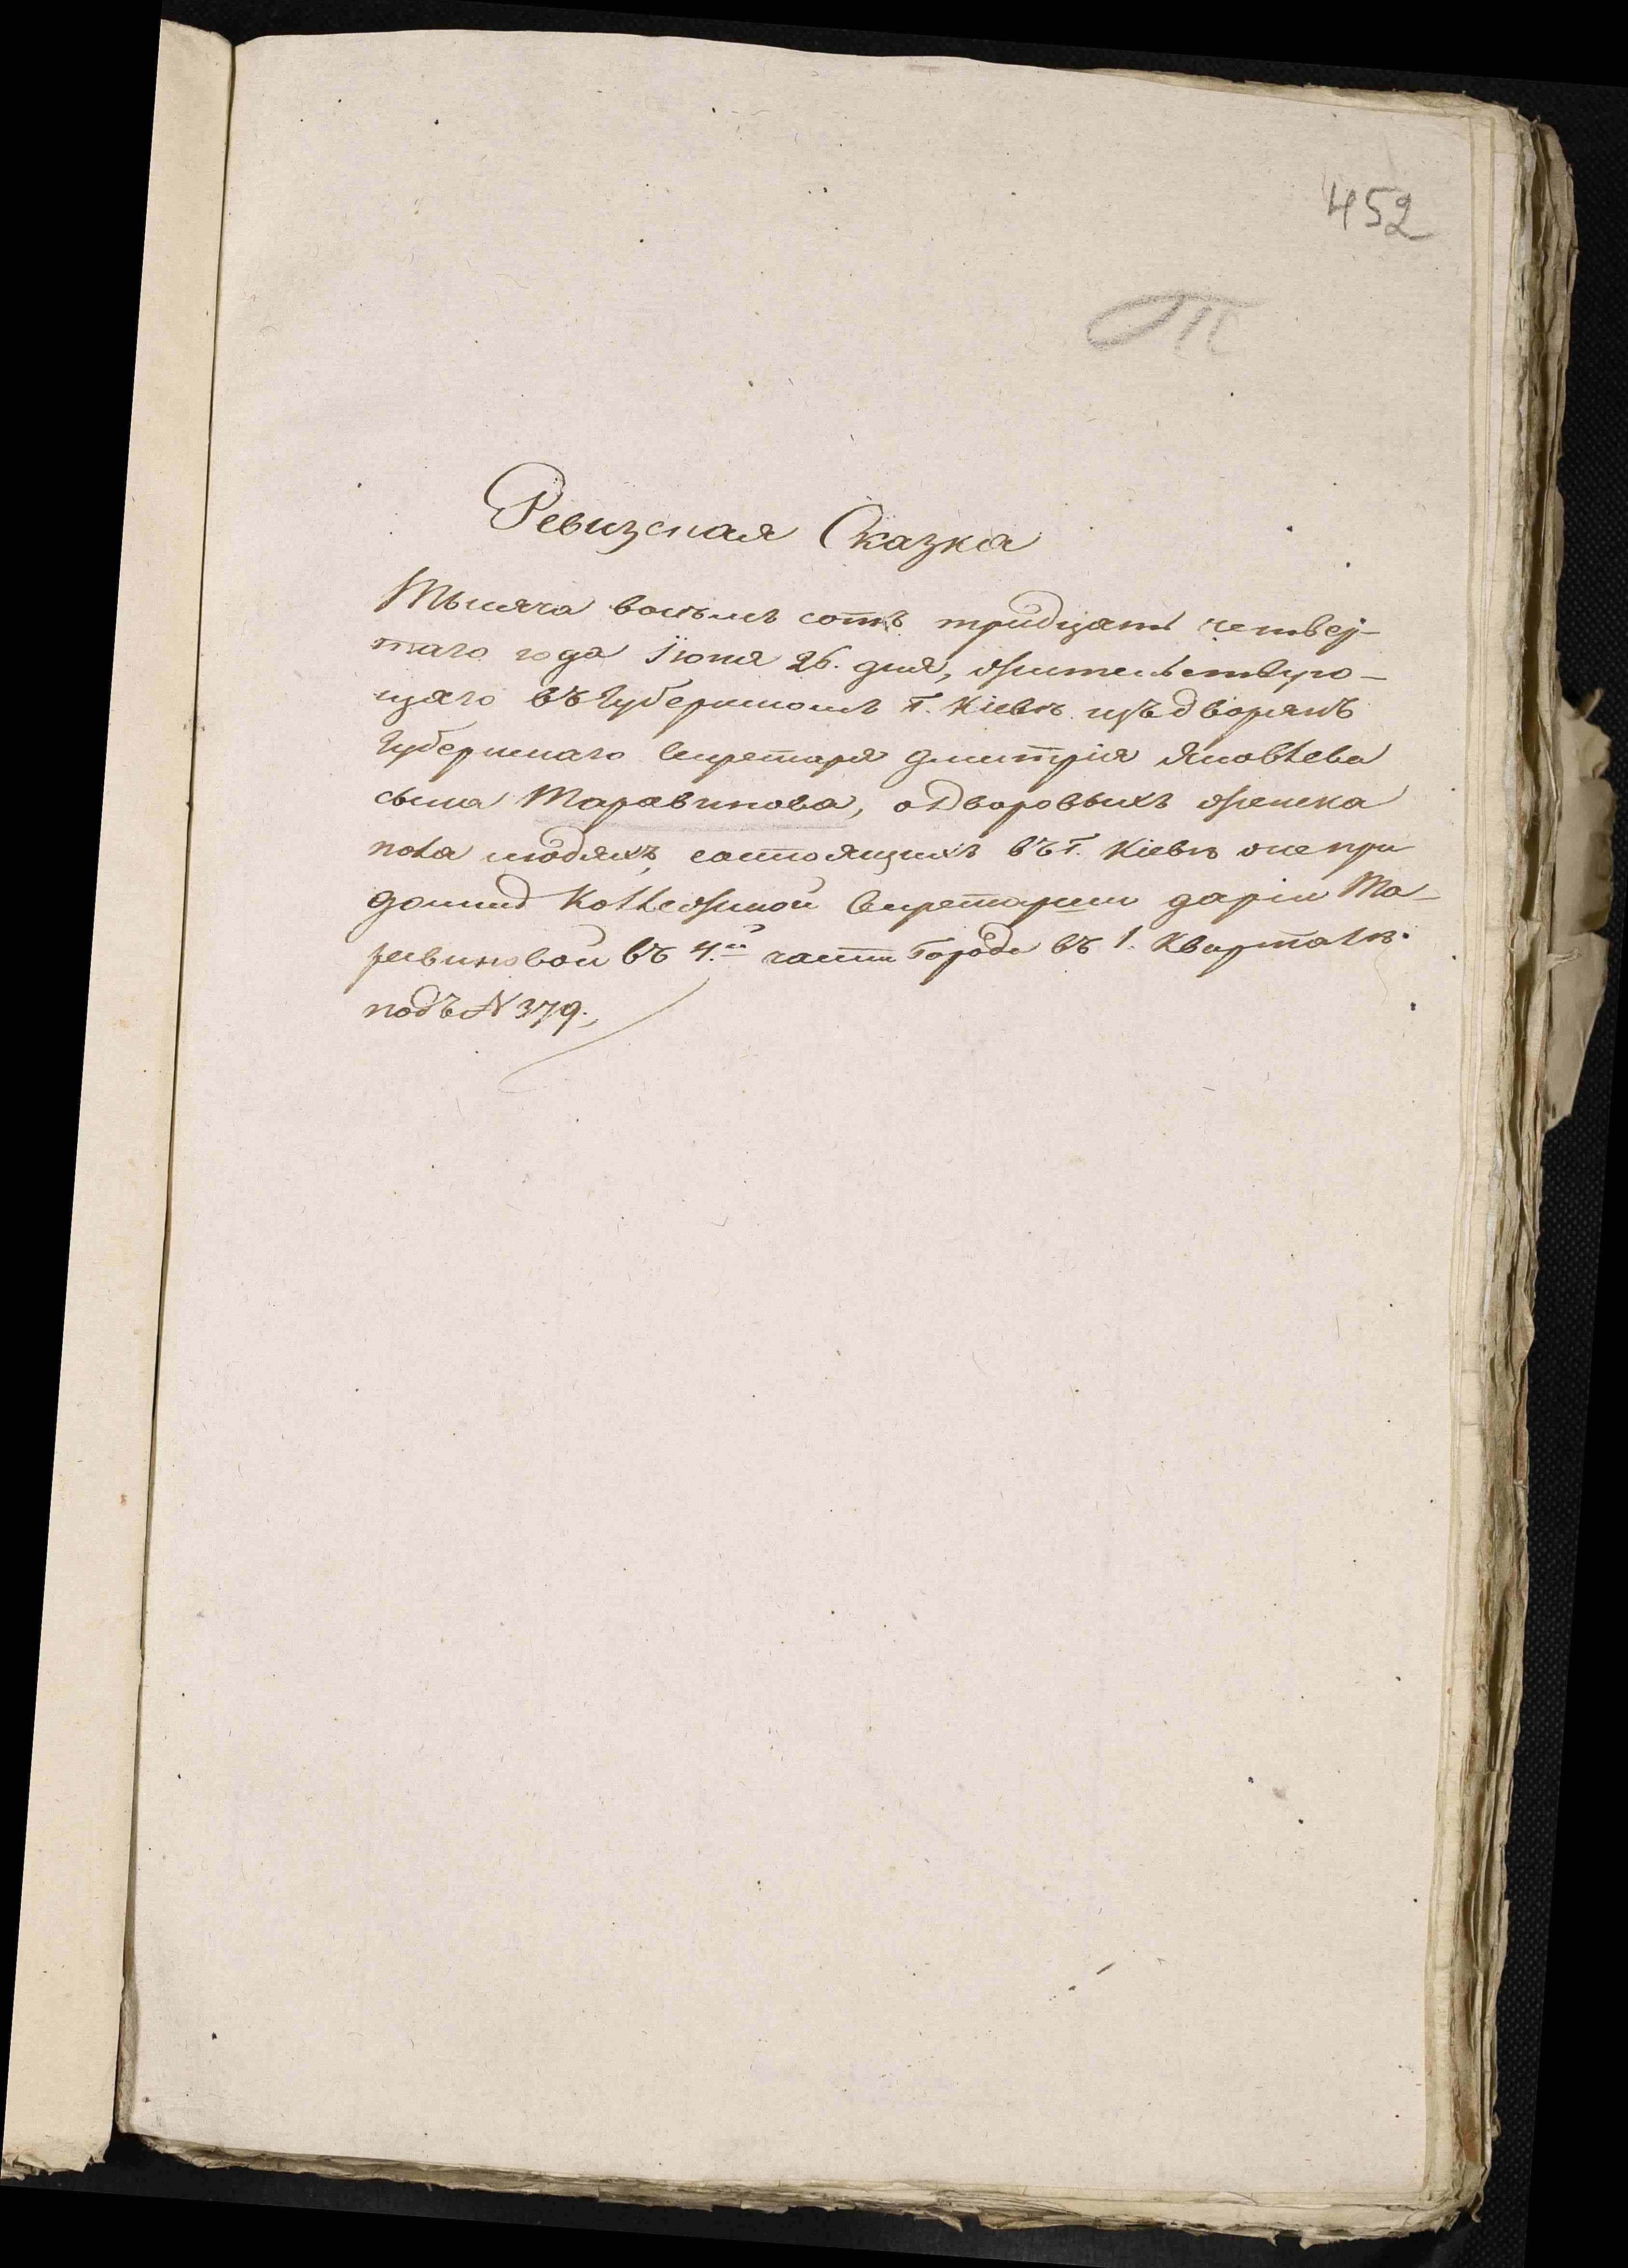 452
Т
Ревизская Сказка
Тысяча восѣмъ сотъ тридцать четвер-
таго года Іюня 26. дня, жительствую-
щаго въ Губернскомъ г. Кіевѣ изъ дворянъ
Губернскаго Секретаря Дмитрія Яковлева
сына Таравинова, о дворовыхъ женска
пола людяхъ, состоящихъ въ г. Кіевѣ при
домѣ Коллежской Секретарши Даріи Та-
равиновой въ 4.й части города въ 1. Кварталѣ.
подъ N 379.